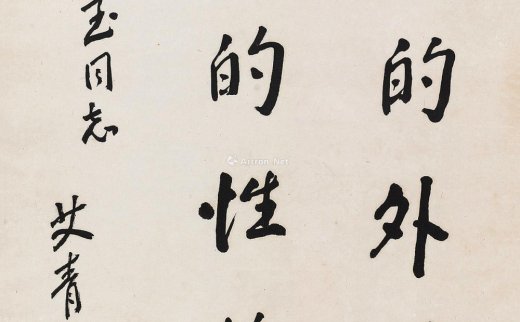 的外
的性
玉同志
艾青
Artron.Net